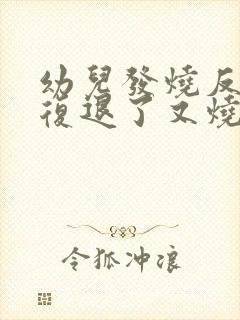 幼兒發燒反
復退了又燒
令狐冲浪